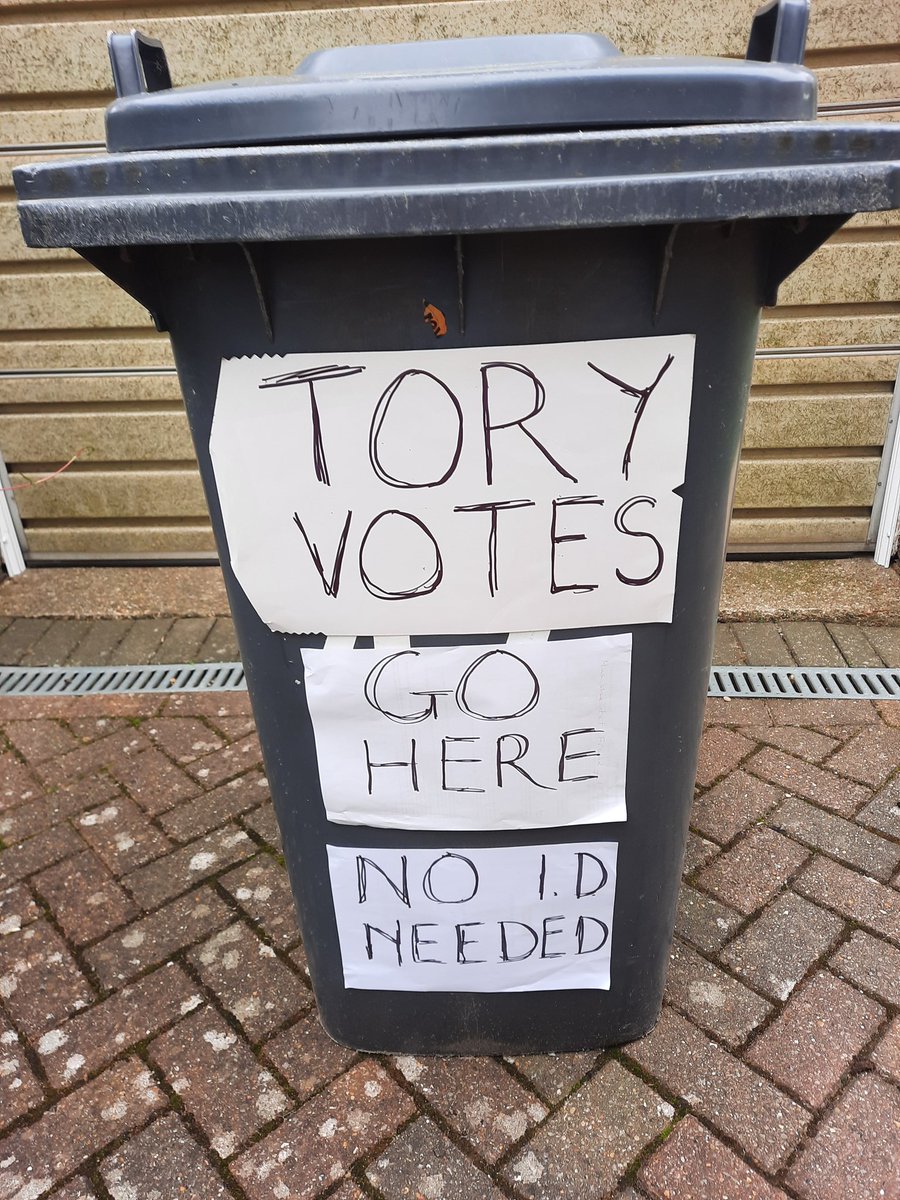 TORY
VOTES
GO
HERE
NO I.D
NEEDED